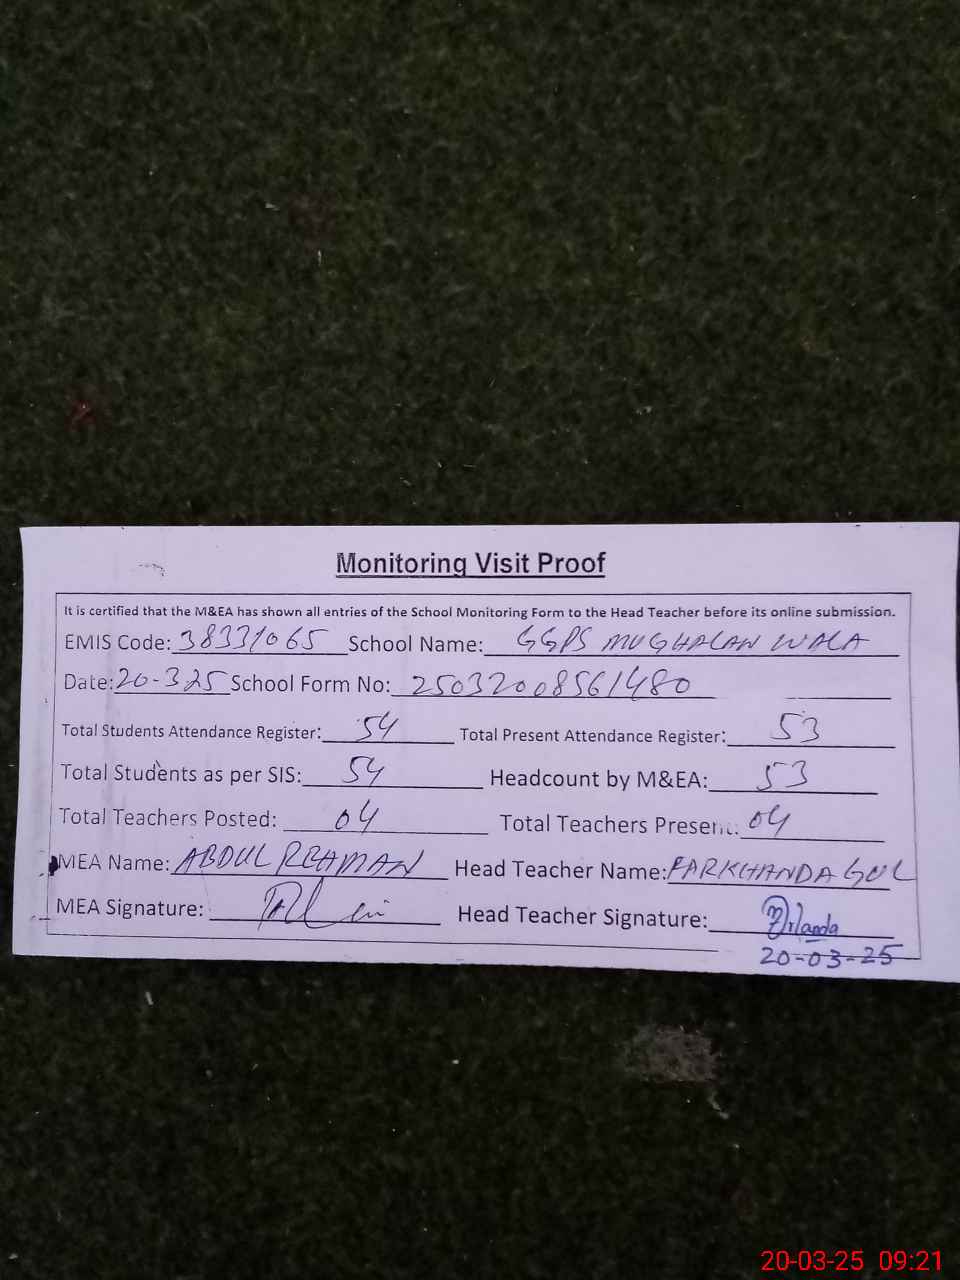 Monitoring Visit Proof
It is certified that the M&EA has shown all entries of the School Monitoring Form to the Head Teacher before its online submission.
EMIS Code: 38331065 School Name: GGPS MUGHALAN WALA
Date: 20-3-25 School Form No: 25032008561480
Total Students Attendance Register: 54 Total Present Attendance Register: 53
Total Students as per SIS: 54 Headcount by M&EA: 53
Total Teachers Posted: 04 Total Teachers Present: 04
MEA Name: ABDUL REHMAN Head Teacher Name: FARKHANDA GUL
MEA Signature: Head Teacher Signature:
20-03-25
20-03-25 09:21